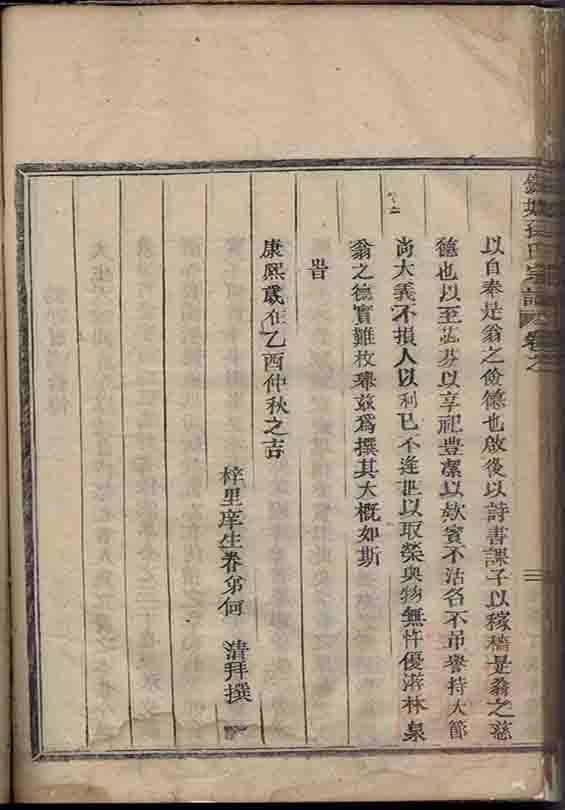 以自奉是翁之儉德也啟後以詩書課子以稼穡是翁之慈
德也以至苾芬以享祀豊潔以欵賓不沽名不吊譽持大節
尚大義不損人以利已不逢世以取榮與物無忤優游林泉
翁之德實難枚舉茲爲撰其大概如斯
旹
康熙歲在乙酉仲秋之吉
梓里庠生眷弟何 清拜撰
孫氏宗譜 卷之